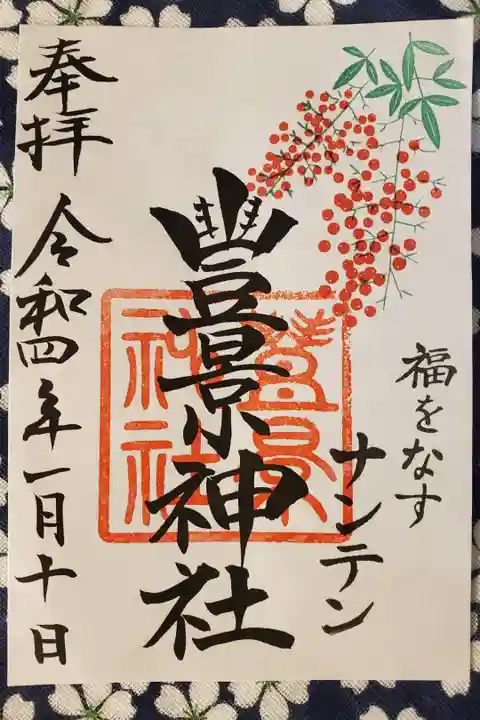 福をなす
ナンテン
豊景神社
豊景神社
奉拝
令和四年一月十日